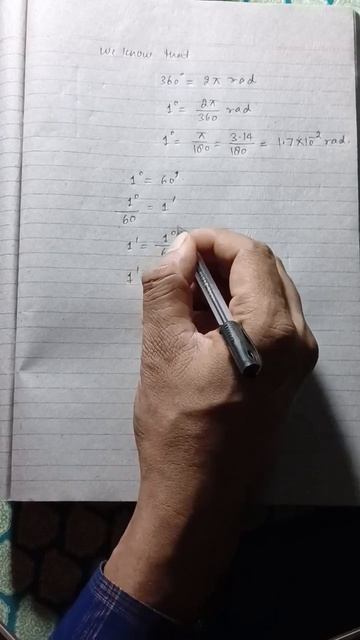 We know that
360° = 2π rad
1° = 2π/360 rad
1° = π/180 = 3.14/180 = 1.7×10⁻² rad.
1° = 60'
1°/60 = 1'
1' = 1°/6
1'